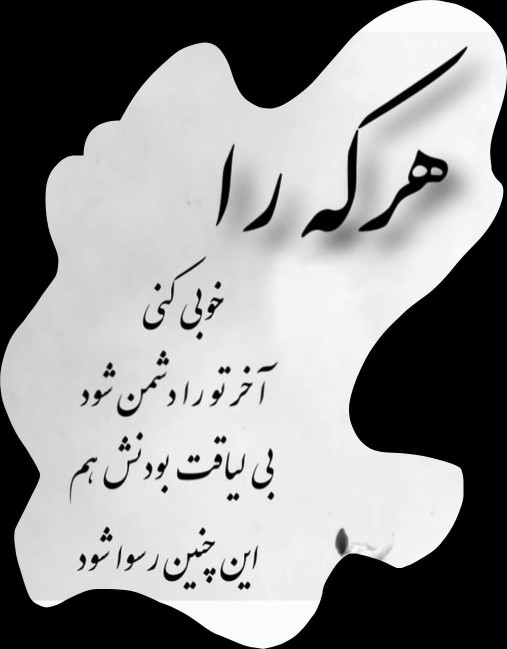 هرکه را
خوبی کنی
آخر تو را دشمن شود
بی لیاقت بودنش هم
این چنین رسوا شود